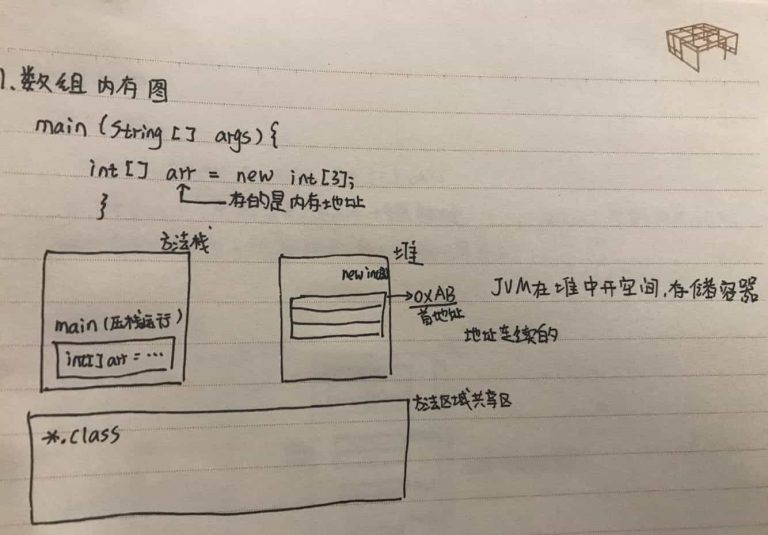 1.数组内存图
main (String [] args) {
int [] arr = new int [3];
存的是内存地址
}
方法栈
main (压栈运行)
int[] arr = ...
堆
new int[3]
0XAB
首地址
JVM在堆中开空间,存储容器
地址连续的
方法区或共享区
*.class